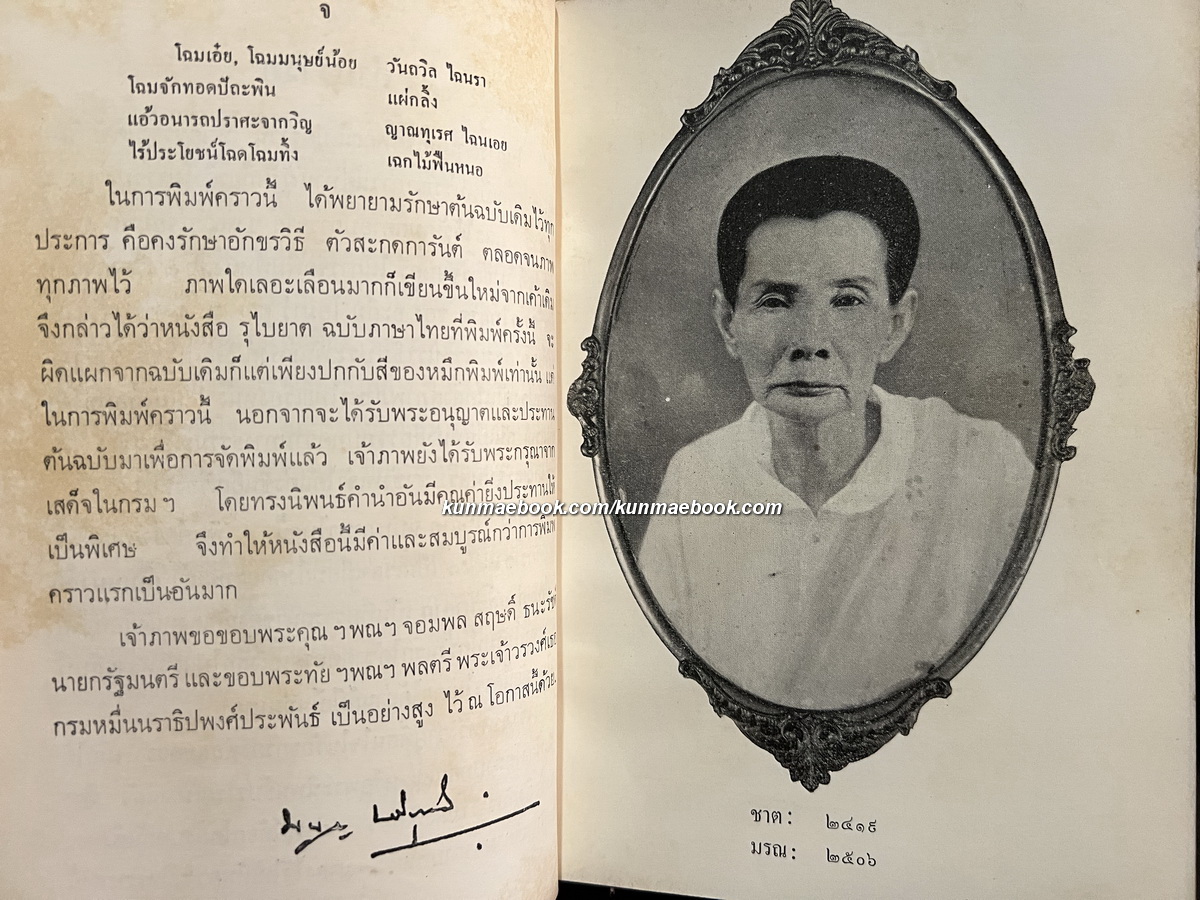 จ
โฉมเอ๋ย, โฉมมนุษย์น้อย วันถวิล ไฉนรา
โฉมจักทอดปัถะพิน แผ่กลิ้ง
แอ้วอนารถปราศะจากวิญ ญาณทุเรศ ไฉนเอย
ไร้ประโยชน์โฉดโฉมทิ้ง เฉกไม้ฟืนหนอ
ในการพิมพ์คราวนี้ ได้พยายามรักษาต้นฉบับเดิมไว้ทุก
ประการ คือคงรักษาอักขรวิธี ตัวสะกดการันต์ ตลอดจนภาพ
ทุกภาพไว้ ภาพใดเลอะเลือนมากก็เขียนขึ้นใหม่จากเค้าเดิม
จึงกล่าวได้ว่าหนังสือ รุไบยาต ฉบับภาษาไทยที่พิมพ์ครั้งนี้ จะ
ผิดแผกจากฉบับเดิมก็แต่เพียงปกกับสีของหมึกพิมพ์เท่านั้น แต่
ในการพิมพ์คราวนี้ นอกจากจะได้รับพระอนุญาตและประทาน
ต้นฉบับมาเพื่อการจัดพิมพ์แล้ว เจ้าภาพยังได้รับพระกรุณาจาก
เสด็จในกรม ฯ โดยทรงนิพนธ์คำนำอันมีคุณค่ายิ่งประทานให้
เป็นพิเศษ จึงทำให้หนังสือนี้มีค่าและสมบูรณ์กว่าการพิมพ์
คราวแรกเป็นอันมาก
เจ้าภาพขอขอบพระคุณ ฯพณฯ จอมพล สฤษดิ์ ธนะรัชต์
นายกรัฐมนตรี และขอบพระทัย ฯพณฯ พลตรี พระเจ้าวรวงศ์เธอ
กรมหมื่นนราธิปพงศ์ประพันธ์ เป็นอย่างสูง ไว้ ณ โอกาสนี้ด้วย
kunmaebook.com/kunmaebook.com
ชาต : ๒๔๑๙
มรณ : ๒๕๐๖